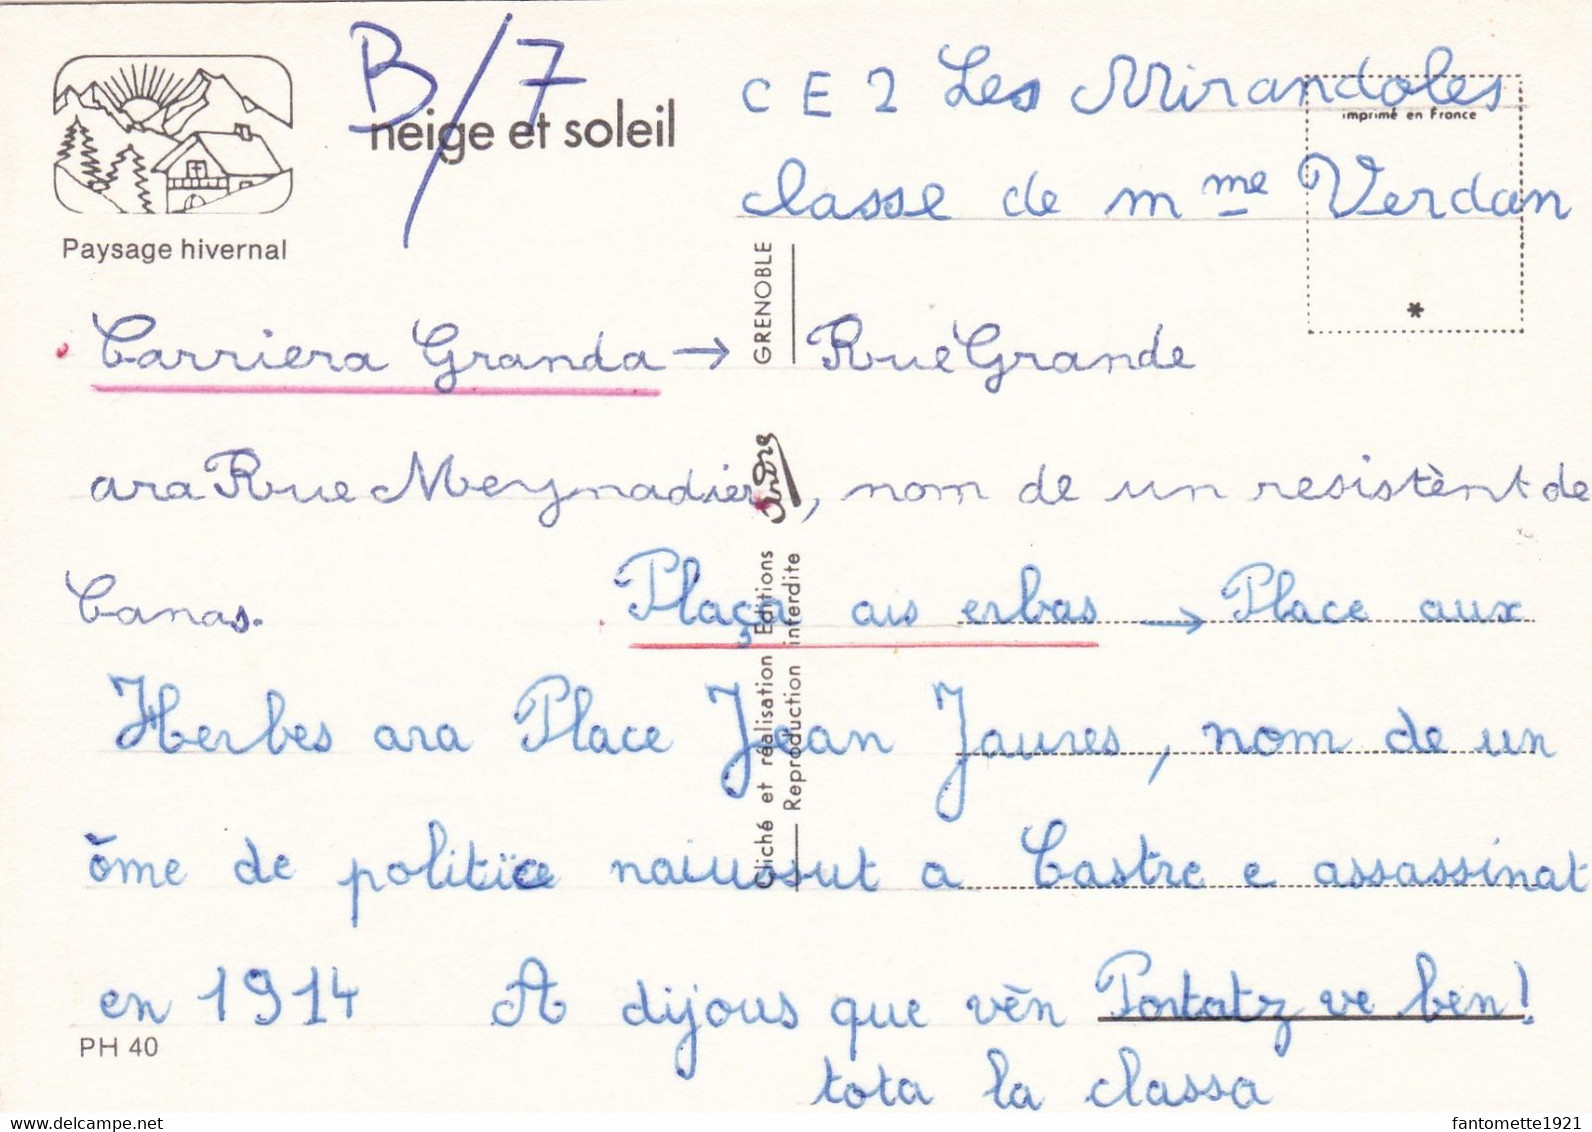 B/7
neige et soleil
Paysage hivernal
C E 2 Les Mirandoles
imprimé en France
classe de mme Verdan
*
GRENOBLE
Carriera Granda → Rue Grande
ara Rue Meynadier, nom de un resistènt de
Canas. Plaça ais erbas → Place aux
Herbes ara Place Jean Jaures, nom de un
ôme de politica naiuosut a Castre e assassinat
en 1914 A dijous que vèn Portatz ve ben!
tota la classa
André
Cliché et réalisation Editions
Reproduction interdite
PH 40
https://www.delcampe.net
fantomette1921